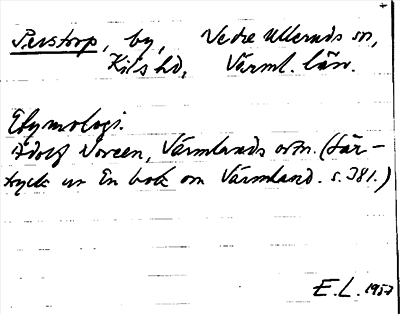 Perstorp, by, Nedre Ulleruds sn,
Kils hd, Värml. län.
Etymologi.
Adolf Noreen, Värmlands ortn. (Sär-
tryck ur En bok om Värmland. s. 381.)
E. L. 1957